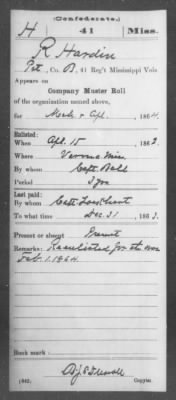 (Confederate.)
H 41 Miss.
R Hardin
Pvt, Co. B, 41 Reg't Mississippi Vols
Appears on
Company Muster Roll
of the organization named above,
for Mch & Apl, 1864.
Enlisted:
When Apl. 15, 1862.
Where Verona Miss
By whom Capt. Ball
Period 3 yrs
Last paid:
By whom Capt.
To what time Dec. 31, 1863.
Present or absent Present
Remarks: Reenlisted for the war
Feb. 1. 1864.
Book mark:
(642)
Copyist.